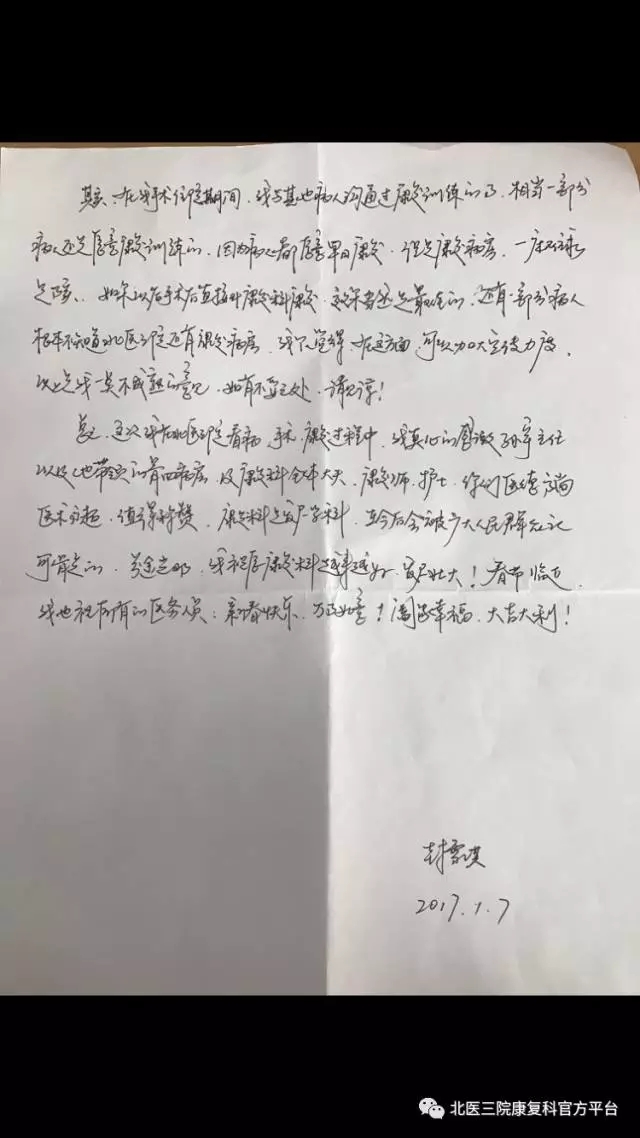 其实,在我手术住院期间,我与其他病人沟通过康复训练的事,相当一部分
病人还是愿意康复训练的,因为病人都愿意早日康复,但是康复病房,一床难求
是障,如果以后手术后直接转康复科康复,这保者还是最佳的,还有一部分病人
根本不知道北医三院还有康复病房,我只觉得,在这方面,可以加大宣传力度,
以上是我一点不成熟的意见,如有不妥之处,请见谅!
总之,这次我在北医三院看病,手术,康复过程中,我真心的感谢孙宇主任
以及他带领的骨四病房,及康复科全体大夫,康复师,护士,你们医德高尚
医术高超,值得称赞,康复科是发展学科,在今后会被广大人民群众认
可肯定的,前途光明,我祝愿康复科越来越好,发展壮大!春节临近,
我也祝所有的医务人员:新春快乐,万事如意!阖家幸福,大吉大利!
2017.1.7
北医三院康复科官方平台